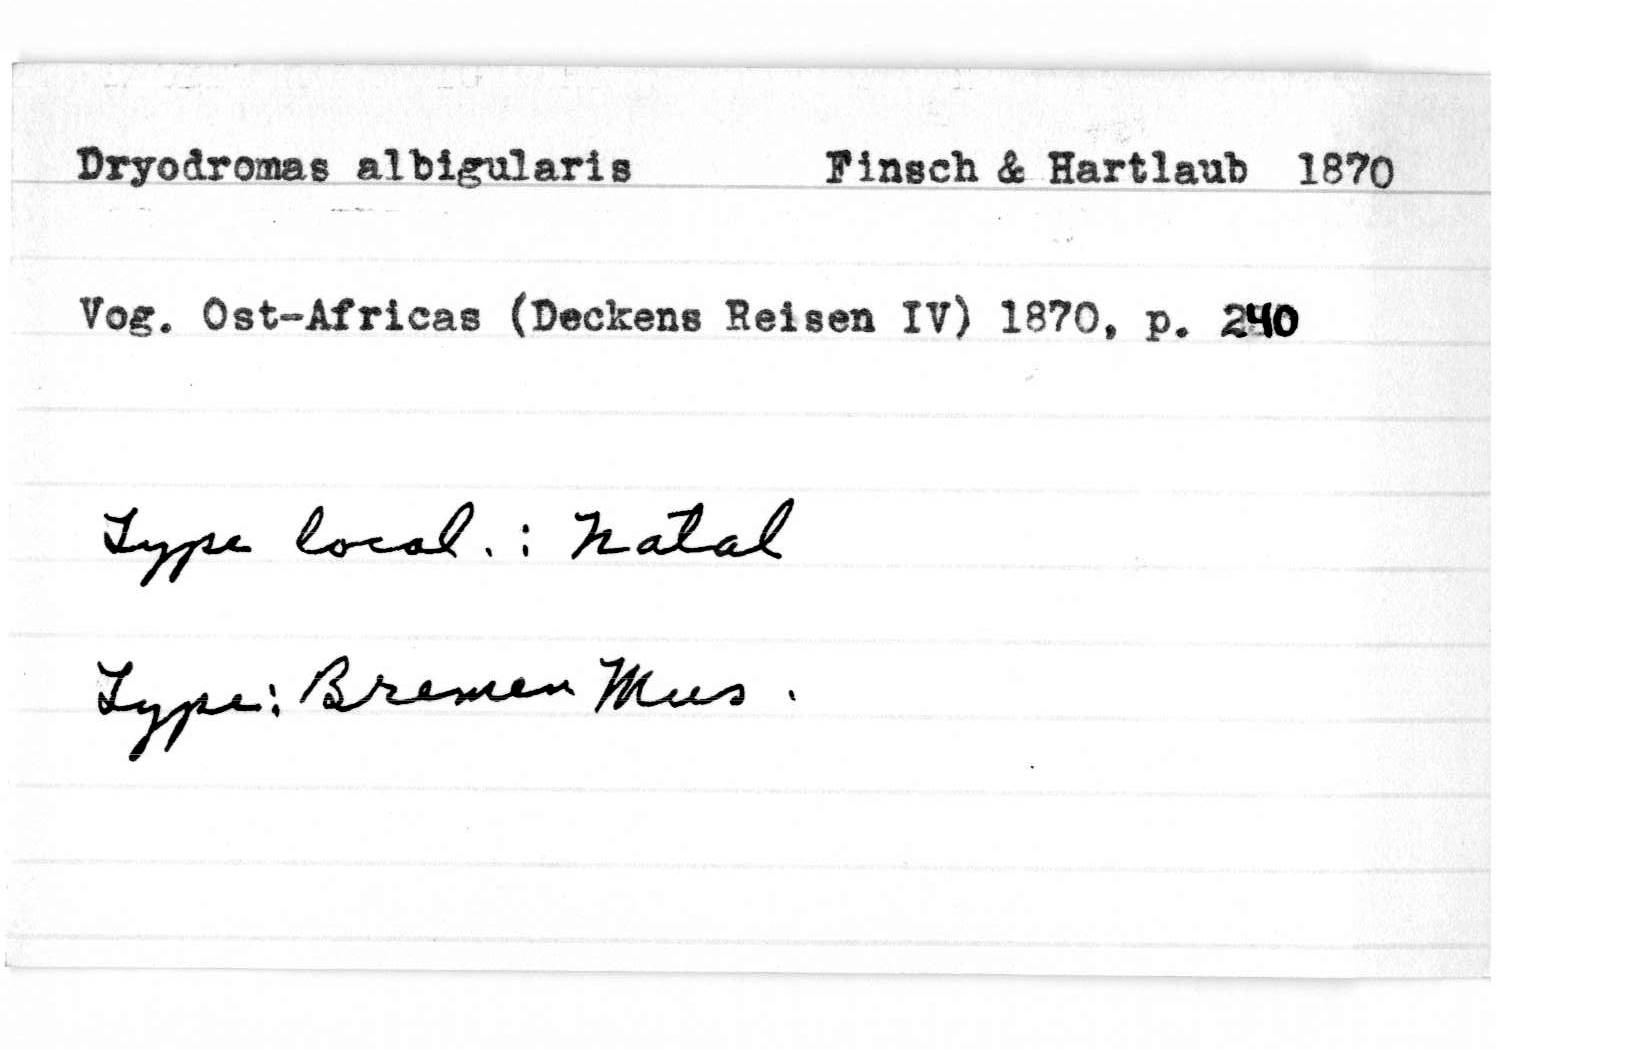 Dryodromas albigularis Finsch & Hartlaub 1870
Vog. Ost-Africas (Deckens Reisen IV) 1870, p. 240
Type local. : Natal
Type: Bremen Mus.